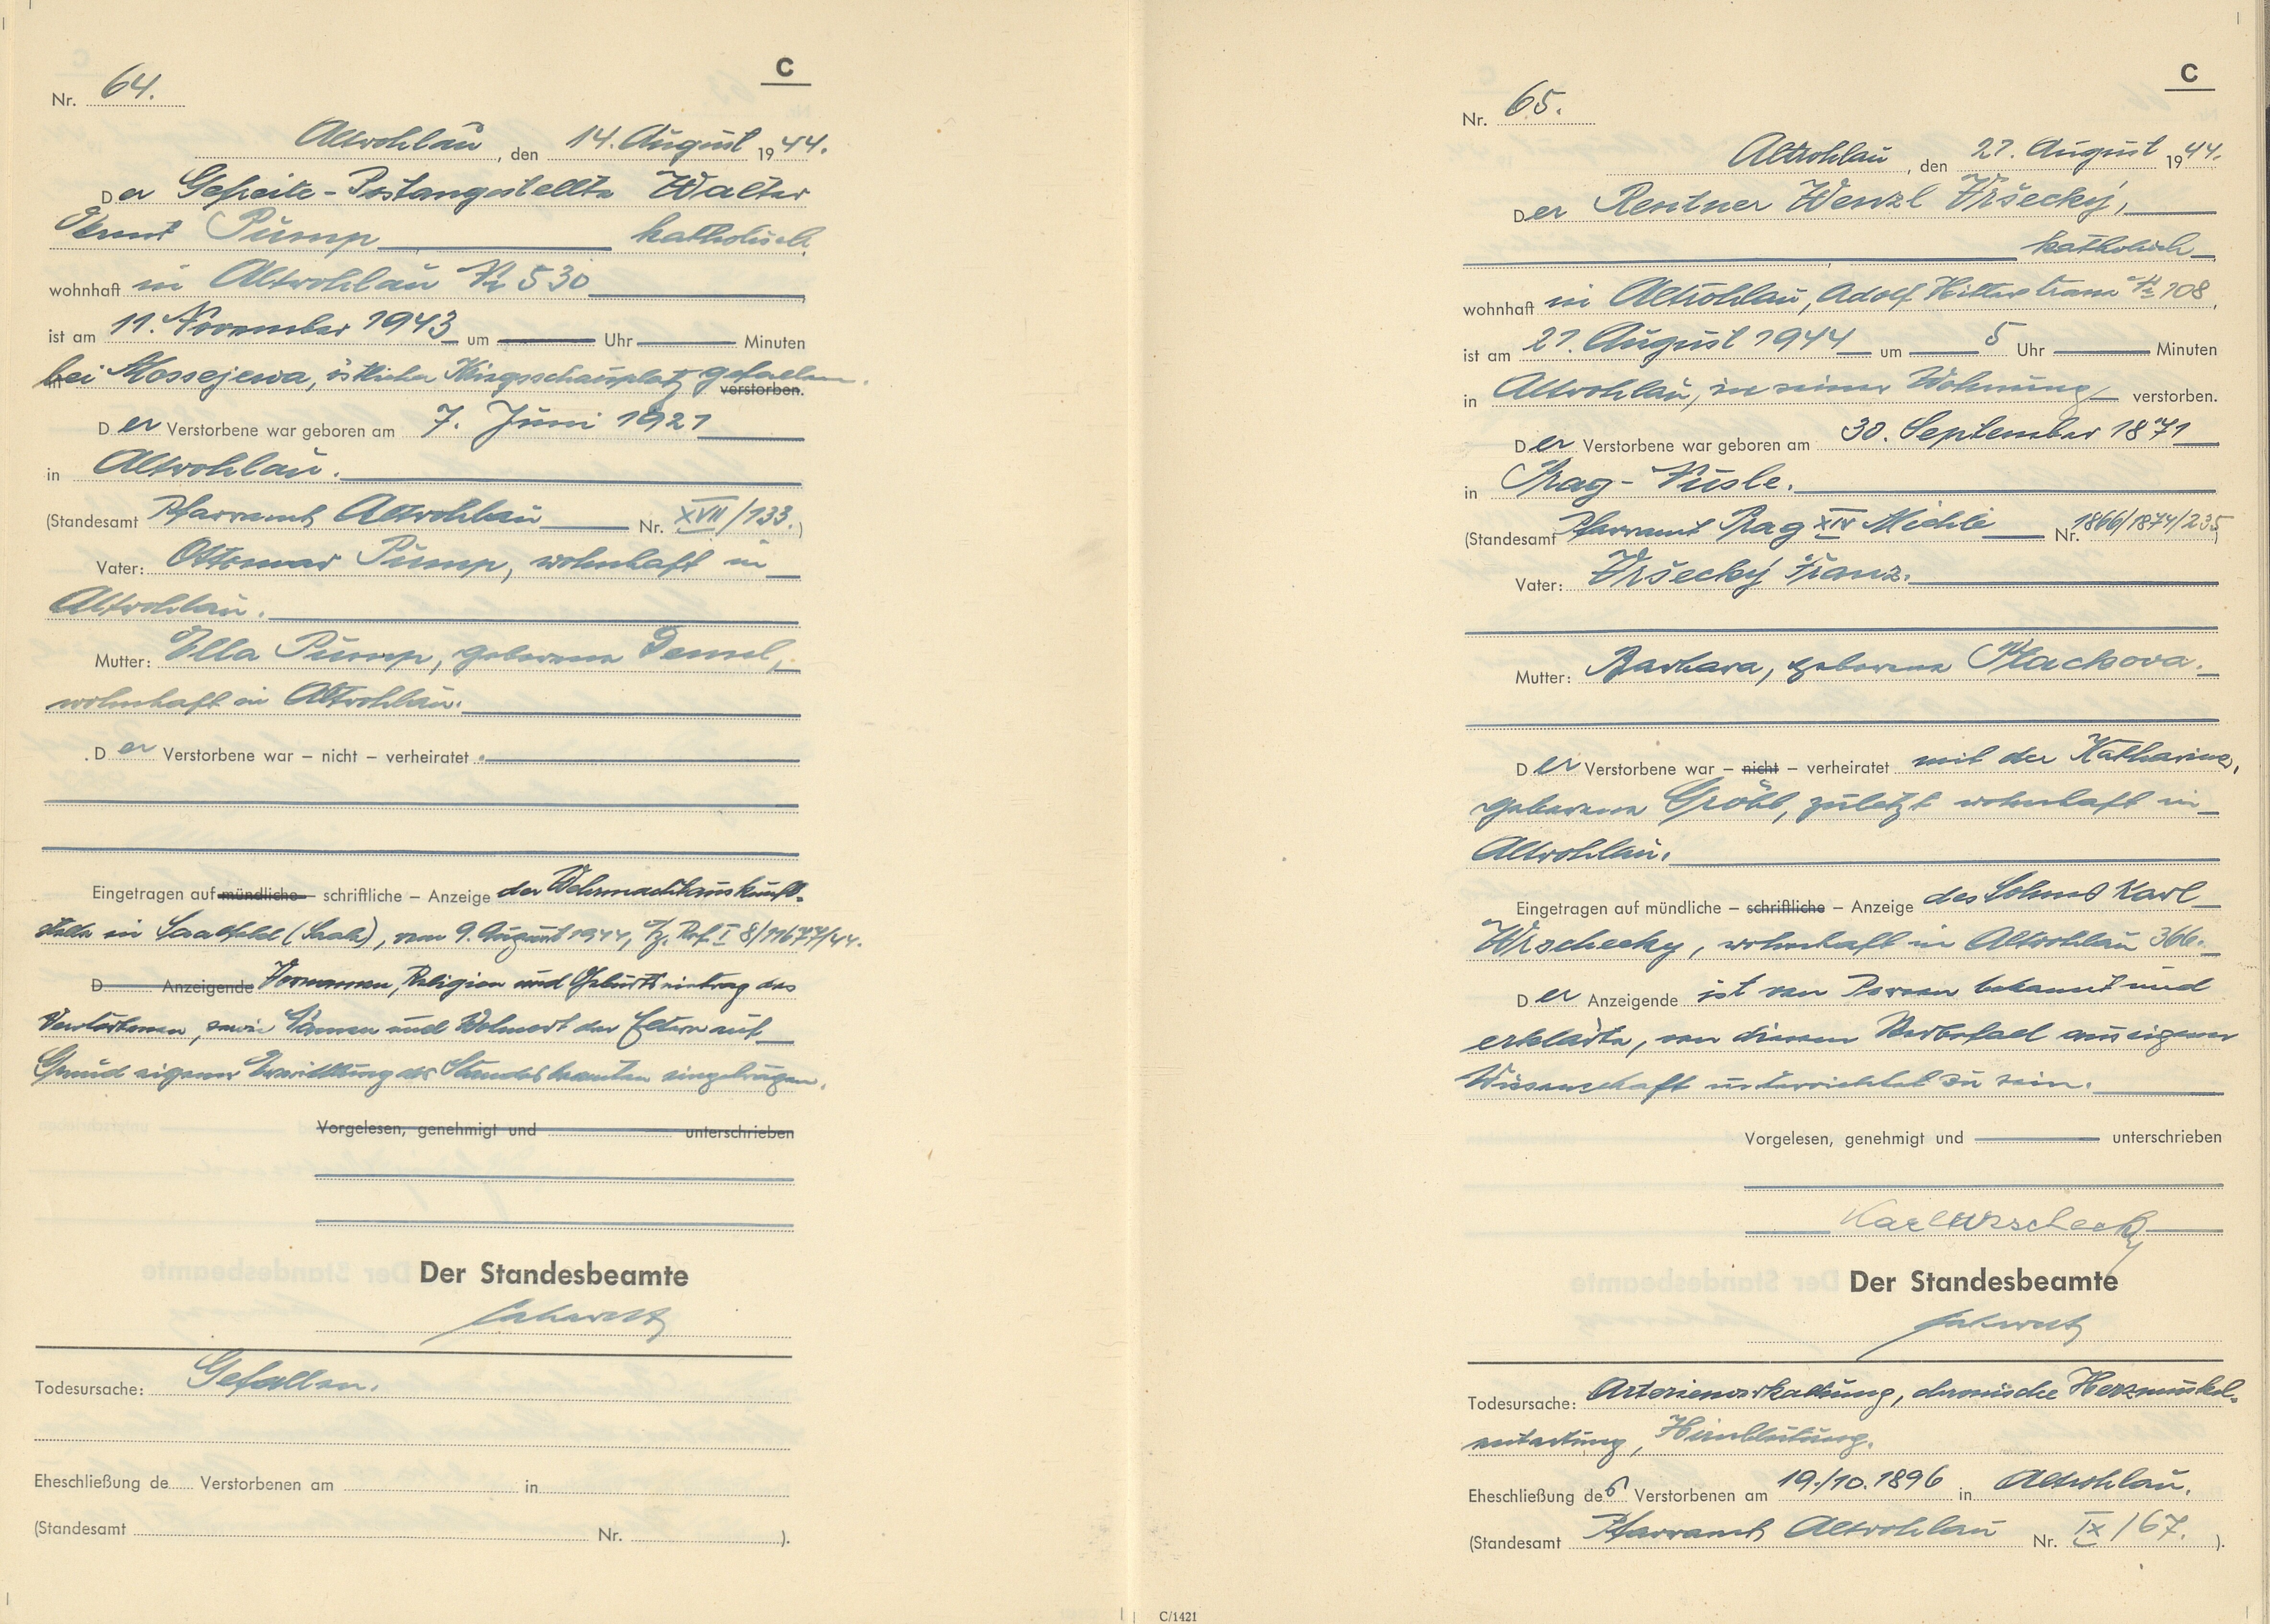 C
Nr. 64.
Altrohlau, den 14. August 1944.
Der Gefreite - Postangestellte Walter
Ernst Pump katholisch,
wohnhaft in Altrohlau Nr 530
ist am 11. November 1943 um Uhr Minuten
bei Mossejewa, östlicher Kriegsschauplatz gefallen.
verstorben.
Der Verstorbene war geboren am 7. Juni 1921
in Altrohlau.
(Standesamt Pfarramt Altrohlau Nr. XVII/133.)
Vater: Ottomar Pump, wohnhaft in
Altrohlau.
Mutter: Ella Pump, geborene Demel,
wohnhaft in Altrohlau.
Der Verstorbene war – nicht – verheiratet.
Eingetragen auf mündliche – schriftliche – Anzeige der Wehrmachtauskunft-
stelle in Saalfeld (Saale), vom 9. August 1944, Ref. I 8/11677/44.
D Anzeigende Vornamen, Religion und Geburtseintrag des
Verstorbenen, sowie Namen und Wohnort der Eltern auf
Grund eigener Ermittlung des Standesbeamten eingetragen.
Vorgelesen, genehmigt und unterschrieben
Der Standesbeamte
Todesursache: Gefallen.
Eheschließung de Verstorbenen am in
(Standesamt Nr. ).
C
Nr. 65.
Altrohlau, den 21. August 1944.
Der Rentner Wenzl Vršecký,
katholisch
wohnhaft in Altrohlau, Adolf Hitlerstrasse Nr 108,
ist am 21. August 1944 um 5 Uhr Minuten
in Altrohlau, in seiner Wohnung verstorben.
Der Verstorbene war geboren am 30. September 1871
in Prag - Nusle.
(Standesamt Pfarramt Prag XIV Michle Nr. 1866/1874/235)
Vater: Vršecký Franz.
Mutter: Barbara, geborene Ptackova.
Der Verstorbene war – nicht – verheiratet mit der Katharina,
geborene Gröbl, zuletzt wohnhaft in
Altrohlau.
Eingetragen auf mündliche – schriftliche – Anzeige des Sohnes Karl
Wrschecky, wohnhaft in Altrohlau 366.
Der Anzeigende ist von Person bekannt und
erklärte, von diesem Sterbefall aus eigener
Wissenschaft unterrichtet zu sein.
Vorgelesen, genehmigt und unterschrieben
Karl Wrschecky
Der Standesbeamte
Todesursache: Arterienverkalkung, chronische Herzmuskel-
entartung, Hirnblutung.
Eheschließung des Verstorbenen am 19./10.1896 in Altrohlau.
(Standesamt Pfarramt Altrohlau Nr. IX/67. ).
C/1421